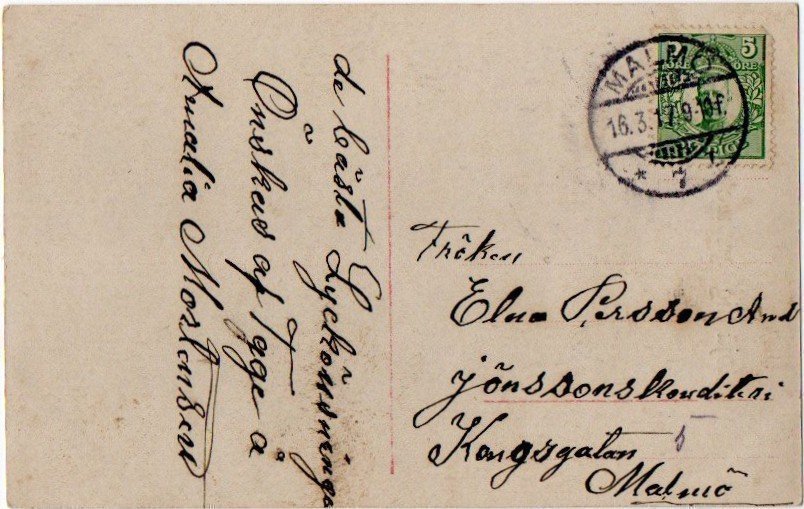 de bästa Lyckönsninga
Önskas af Tage å
Amalia Mortensen
MALMÖ
16.3.17.9-10 f.
* 7 *
5 5
ÖRE ÖRE
Fröken
Elna Persson And
Jönssonskonditeri
Kongsgatan 5
Malmö